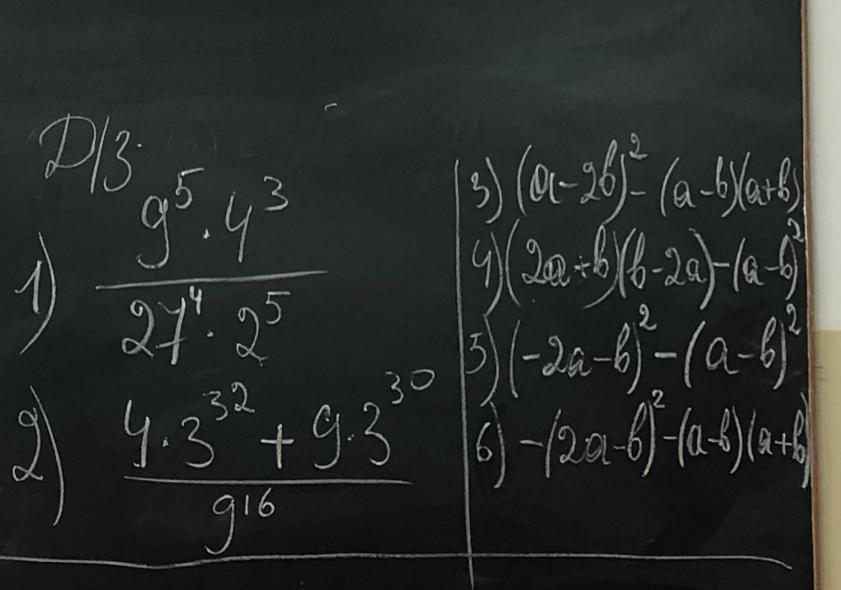 Д/З.
1) 9⁵ · 4³ / 27⁴ · 2⁵
2) 4 · 3³² + 9 · 3³⁰ / 9¹⁶
3) (a-2b)² - (a-b)(a+b)
4) (2a+b)(b-2a) - (a-b)²
5) (-2a-b)² - (a-b)²
6) -(2a-b)² - (a-b)(a+b)